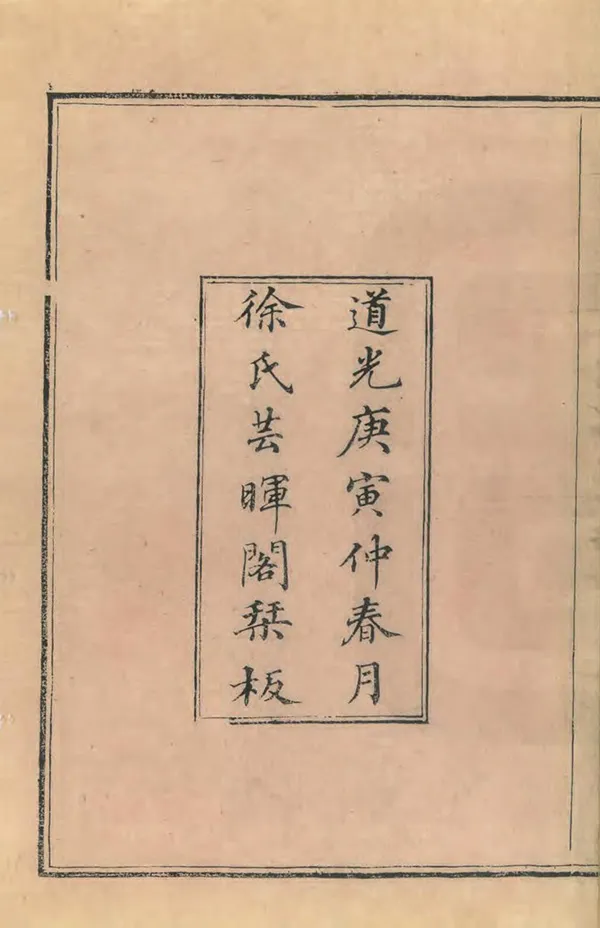 道光庚寅仲春月
徐氏芸暉閣栞板